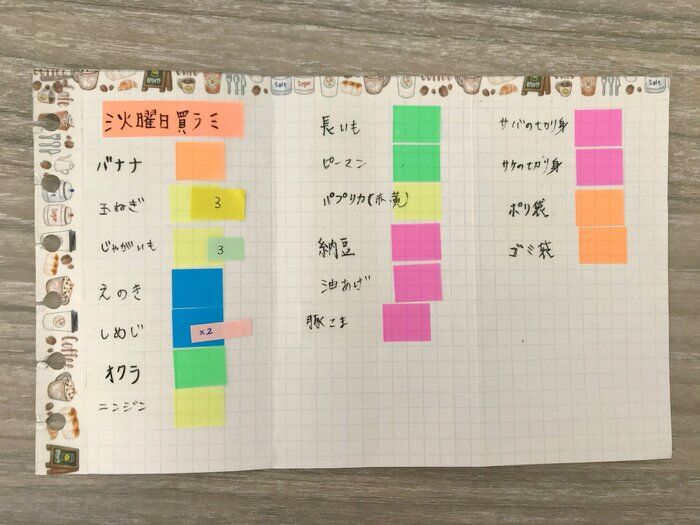 ミ火曜日買うミ
バナナ
玉ねぎ 3
じゃがいも 3
えのき
しめじ x2
オクラ
ニンジン
長いも
ピーマン
パプリカ(赤、黄)
納豆
油あげ
豚こま
サバの切り身
サケの切り身
ポリ袋
ゴミ袋